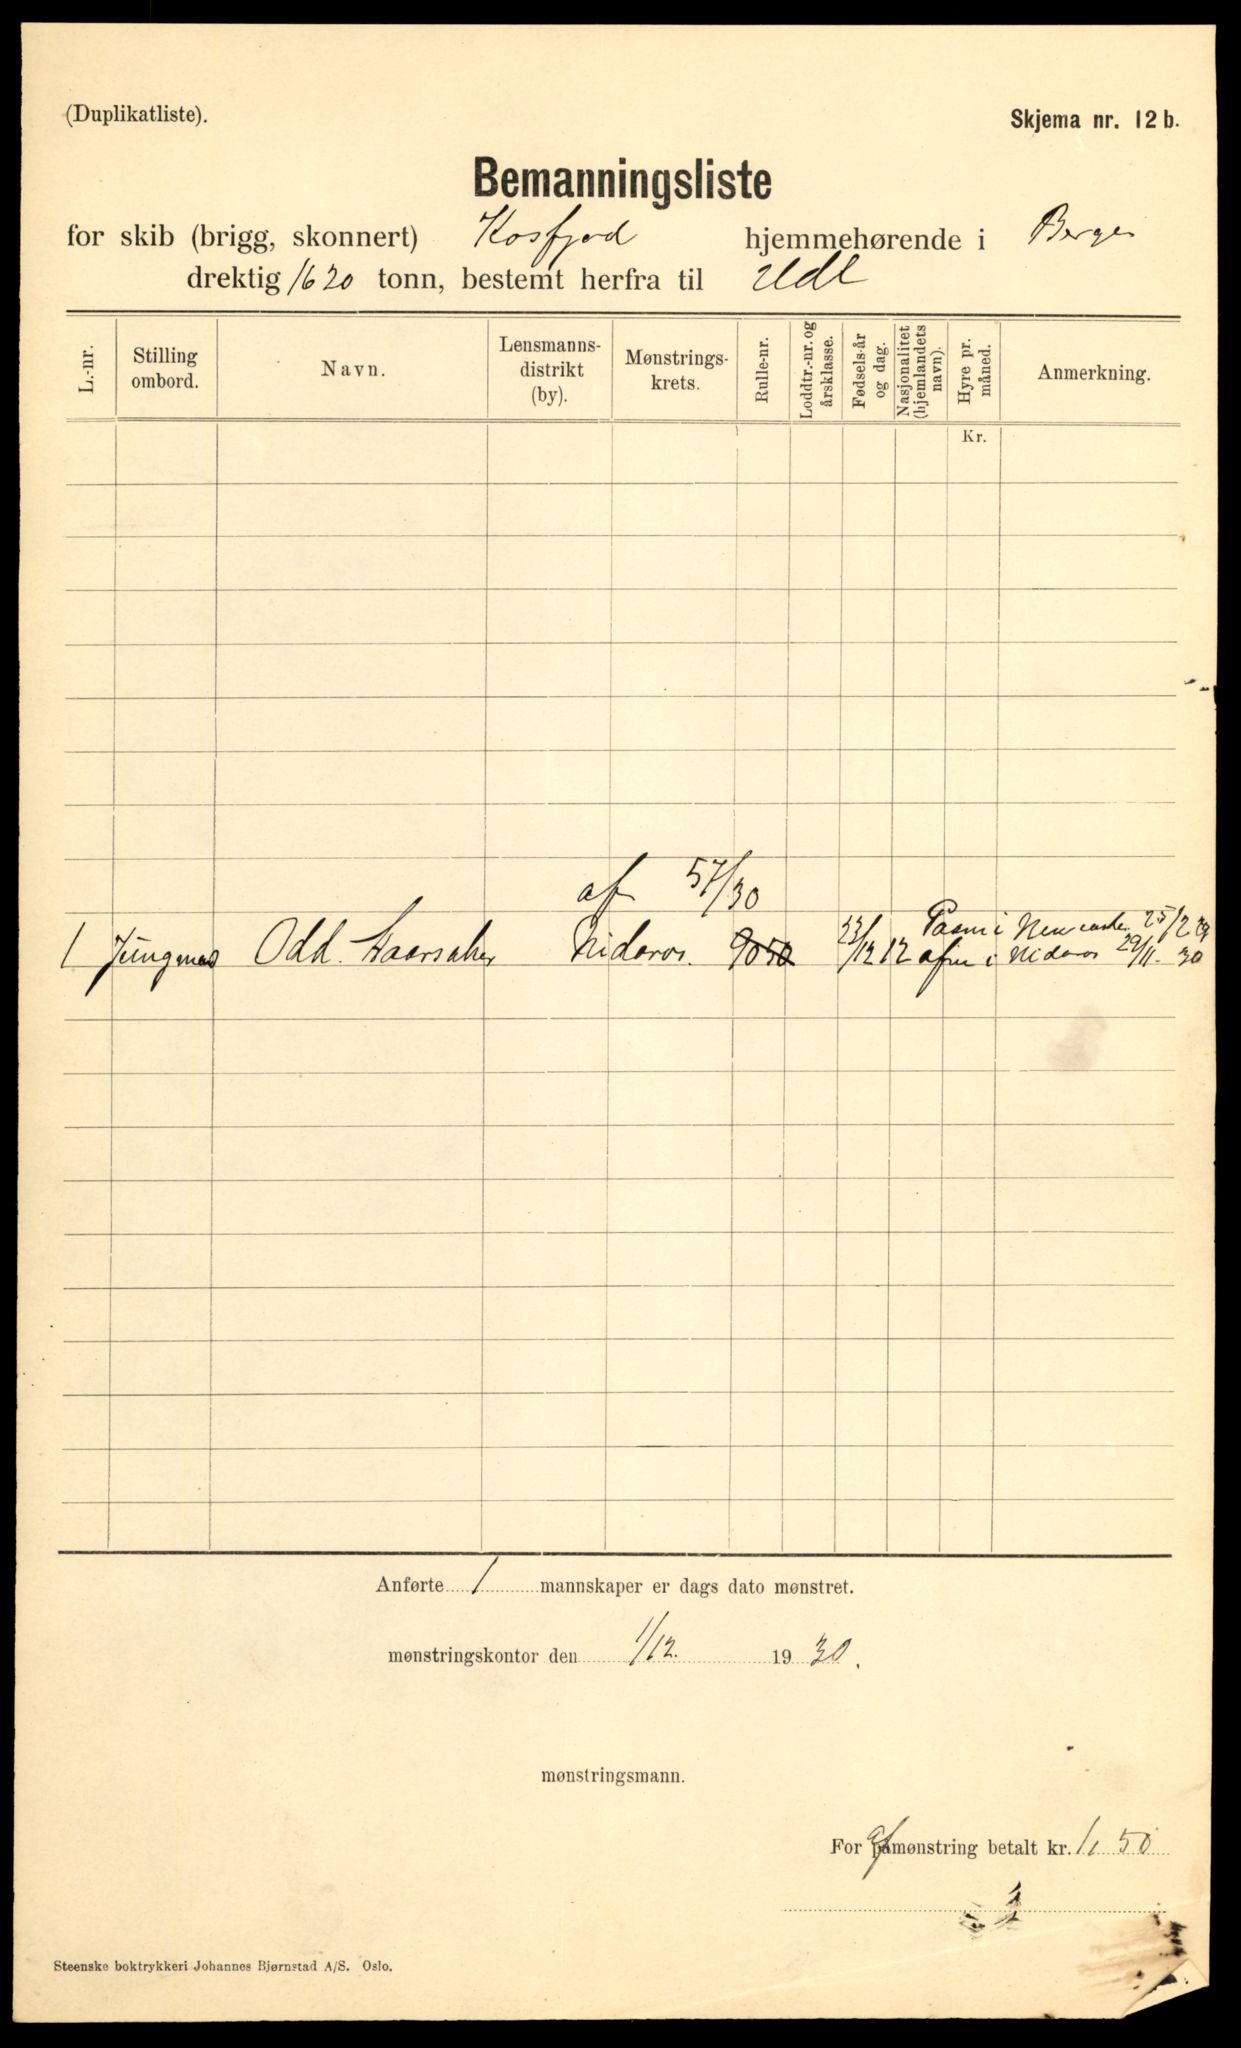 (Duplikatliste).
Skjema nr. 12 b.
Bemanningsliste
for skib (brigg, skonnert) Kosfjord hjemmehørende i Bergen
drektig 1620 tonn, bestemt herfra til Udl
L.-nr.
Stilling ombord.
Navn.
Lensmanns-distrikt (by).
Mønstrings-krets.
Rulle-nr.
Loddtr.-nr. og årsklasse.
Fødsels-år og dag.
Nasjonalitet (hjemlandets navn).
Hyre pr. måned.
Anmerkning.
Kr.
af 57/30
1 Jungmas Odd. Haarsaker Nidaros. 9050 23/12 12 Paam i Newcastle 25/2 29
afm i Nidaros 29/11. 30
Anførte 1 mannskaper er dags dato mønstret.
mønstringskontor den 1/12. 1930.
mønstringsmann.
For afmønstring betalt kr. 1,50
Steenske boktrykkeri Johannes Bjørnstad A/S. Oslo.